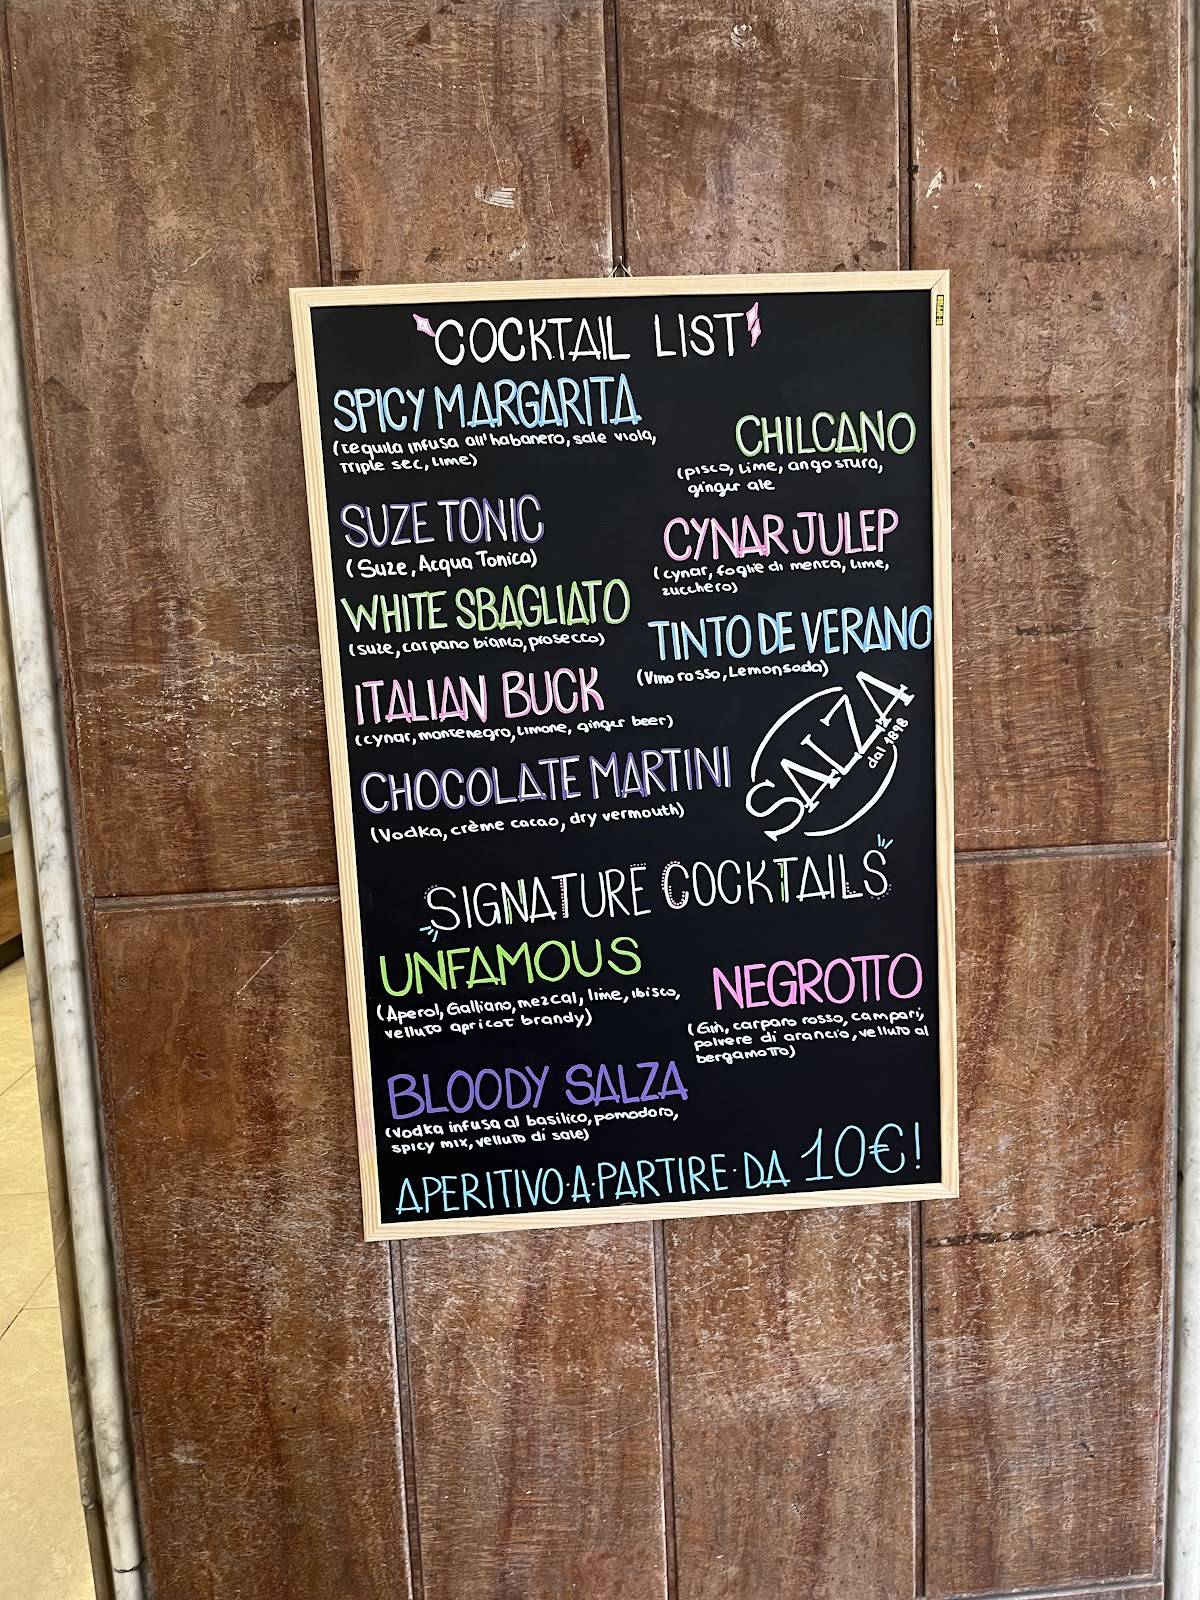 COCKTAIL LIST
SPICY MARGARITA
(tequila infusa all'habanero, sale viola,
triple sec, lime)
CHILCANO
(pisco, lime, angostura,
ginger ale
SUZE TONIC
(Suze, Acqua Tonica)
CYNAR JULEP
(cynar, foglie di menta, lime,
zucchero)
WHITE SBAGLIATO
(suze, carpano bianco, prosecco)
TINTO DE VERANO
(Vino rosso, Lemonsoda)
ITALIAN BUCK
(cynar, montenegro, limone, ginger beer)
CHOCOLATE MARTINI
(Vodka, crème cacao, dry vermouth)
SALZA
dal 1898
SIGNATURE COCKTAILS
UNFAMOUS
(Aperol, Galliano, mezcal, lime, ibisco,
velluto apricot brandy)
NEGROTTO
(Gin, carpano rosso, campari,
polvere di arancio, velluto al
bergamotto)
BLOODY SALZA
(Vodka infusa al basilico, pomodoro,
spicy mix, velluto di sale)
APERITIVO·A·PARTIRE·DA 10€!